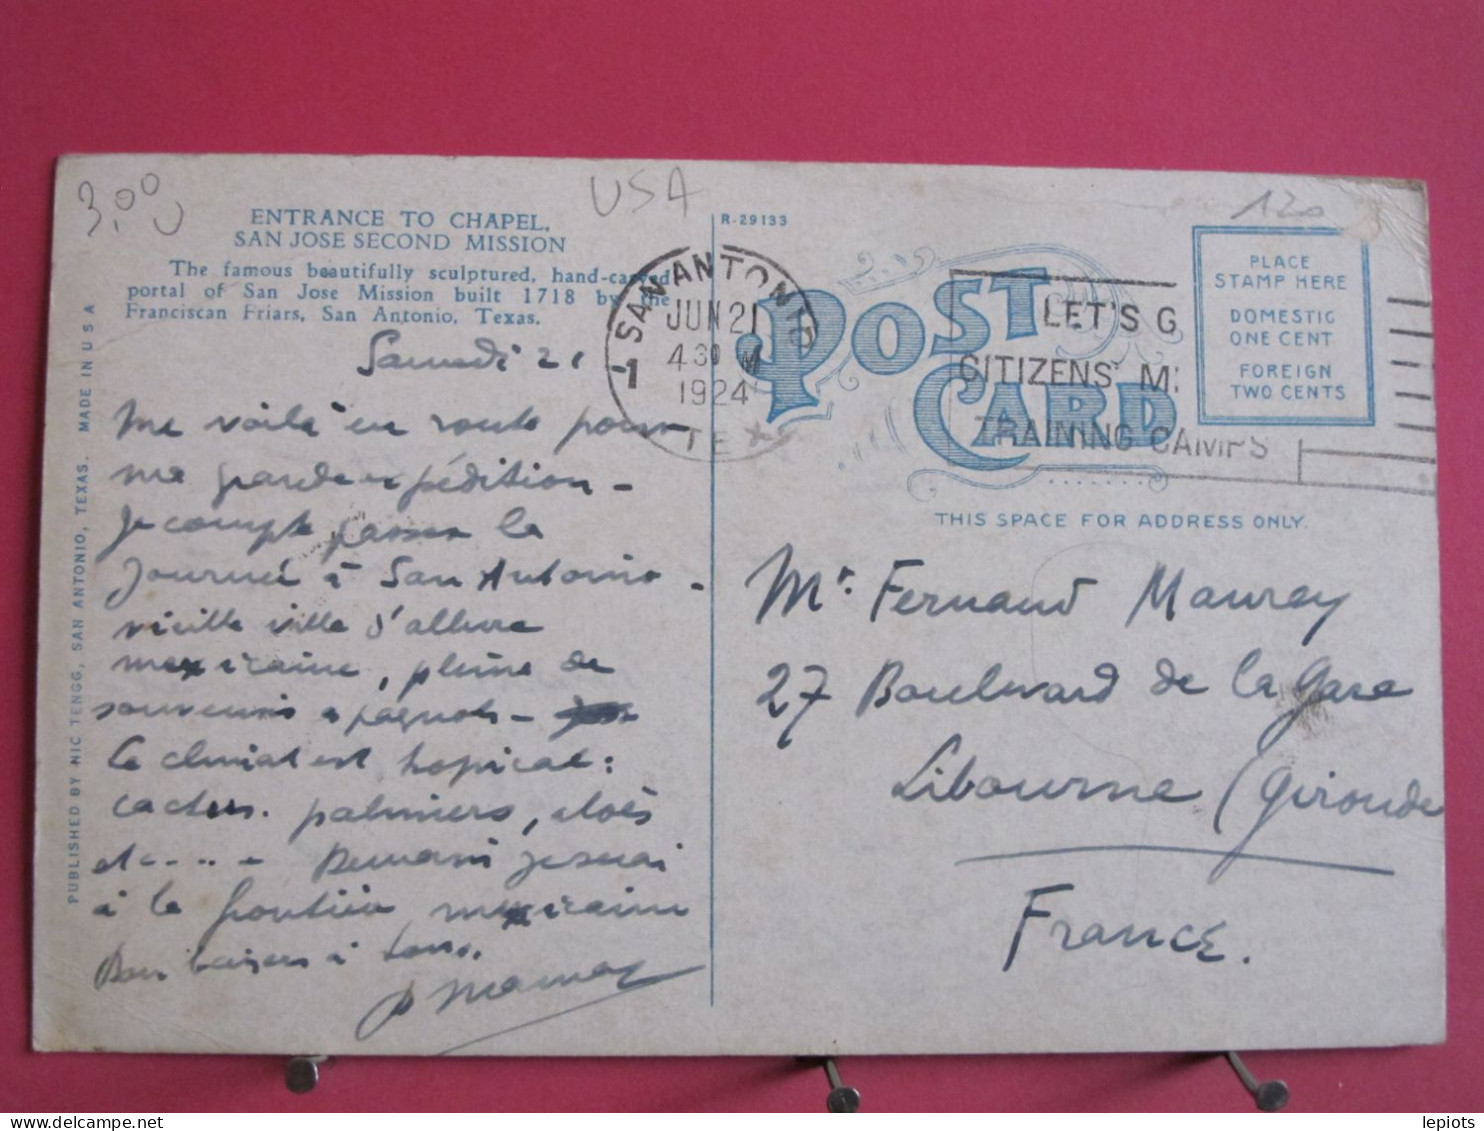 3.00
USA
120
ENTRANCE TO CHAPEL,
SAN JOSE SECOND MISSION
The famous beautifully sculptured, hand-carved
portal of San Jose Mission built 1718 by the
Franciscan Friars, San Antonio, Texas.
PUBLISHED BY NIC TENGG, SAN ANTONIO, TEXAS. MADE IN U S A
Samedi 21
Me voilà en route pour
ma grande expédition -
Je compte passer la
journée à San Antonio -
vieille ville d'allure
mexicaine, pleine de
souvenirs espagnols -
Le climat est tropical :
cactus. palmiers, aloès
etc.... - Demain je serai
à la frontière mexicaine
Bons baisers à tous.
R-29133
SAN ANTONIO
JUN 21
4 30 M
1924
TEX
1
LET'S G
CITIZENS' MI
TRAINING CAMPS
POST CARD
PLACE
STAMP HERE
DOMESTIC
ONE CENT
FOREIGN
TWO CENTS
THIS SPACE FOR ADDRESS ONLY.
Mr. Fernand Maurey
27 Boulevard de la Gare
Libourne (Gironde
France.
lepiots